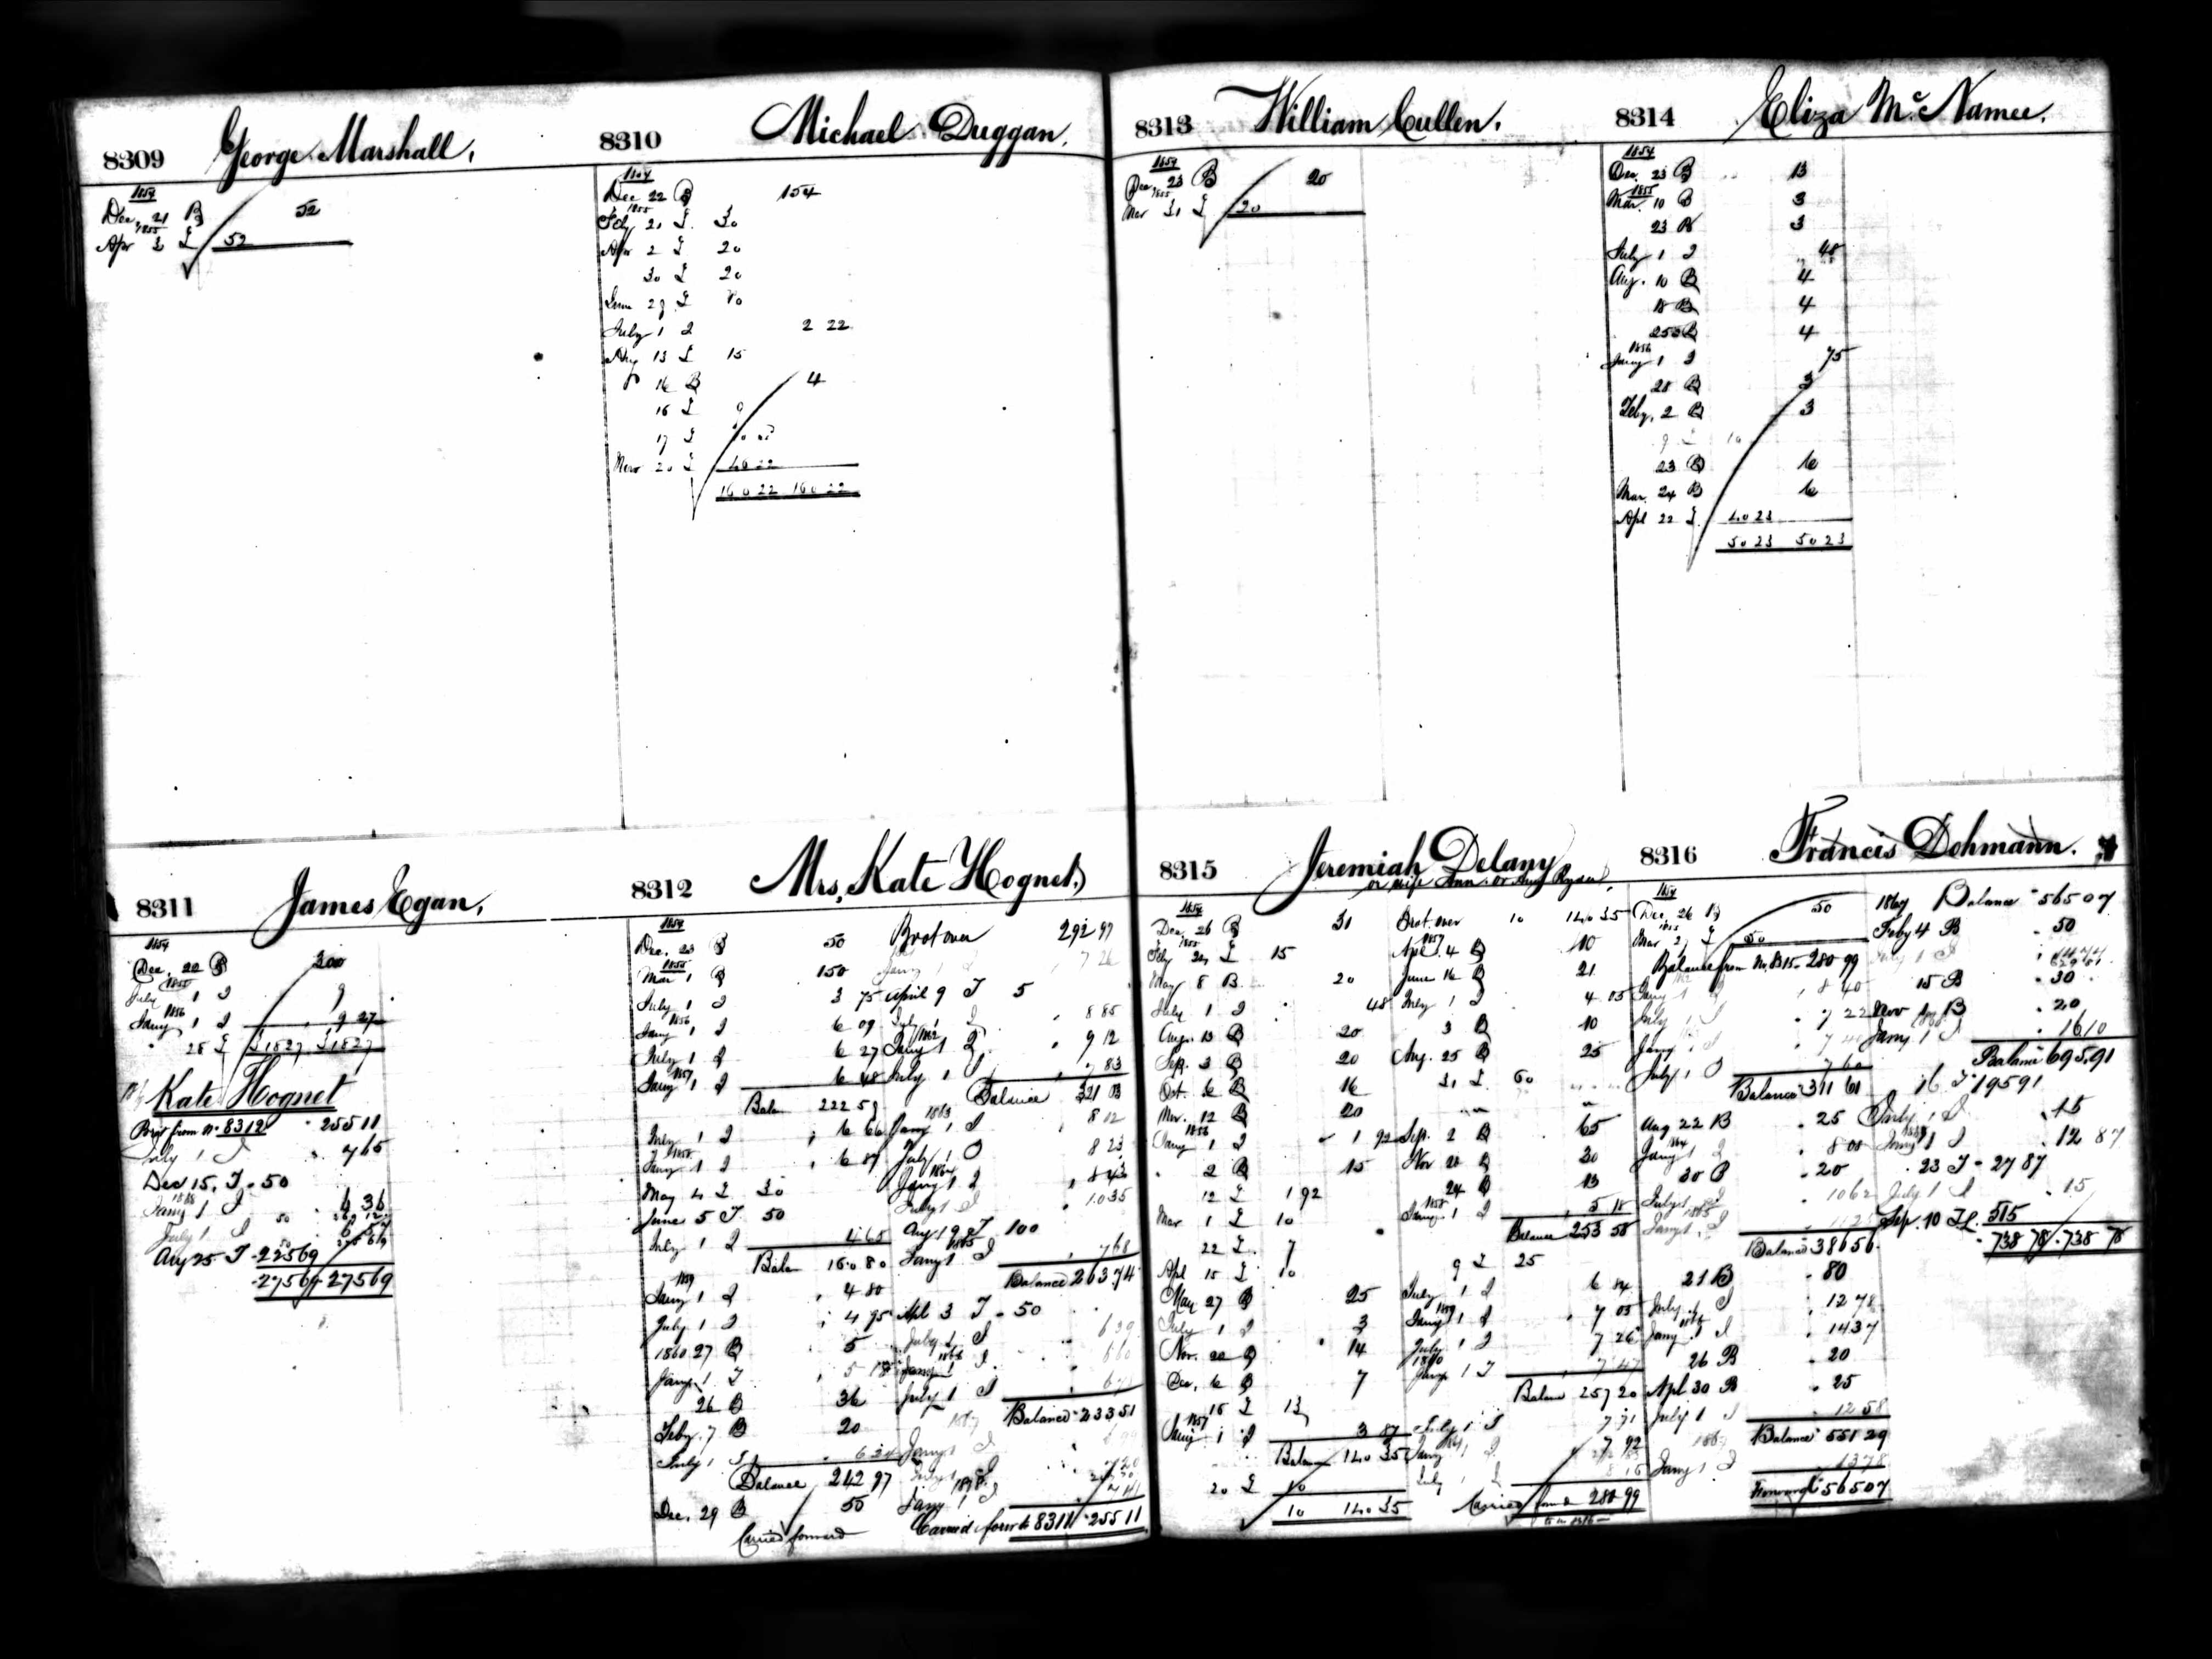 8309 George Marshall.
1854
Dec. 21 B 52
1855
Apr 3 I 52
8310 Michael Duggan.
1854
Dec 22 B 154
1855
Feby 20 I 30
Apr 2 I 20
30 I 20
June 29 I
July 1 I 2 22
Aug 13 I 15
16 B 4
16 I 9
17 I
Nov 20 I
160 22 160 22
8313 William Cullen.
1854
Dec. 23 B 20
1855
Mar 31 I 20
8314 Eliza Mc Namee.
1854
Dec. 23 B 13
1855
Mar. 10 B 3
23 B 3
July 1 I 48
Aug. 10 B 4
18 B 4
25 B 4
1856
Jany 1 I 75
28 B 3
Feby. 2 B 3
9 I 10
23 B 6
Mar. 24 B 6
Apl 22 I 40 23
50 23 50 23
8311 James Egan.
1854
Dec. 22 B 300
1855
July 1 I 9
1856
Jany 1 I 9 27
28 I 318 27 318 27
Kate Hognet
Brot from No. 8312 255 11
July 1 I 7 65
Dec 15. I 50
1868
Jany 1 I 6 36
July 1 I 6 57
Aug 25 I 225 69
275 69 275 69
8312 Mrs, Kate Hognet,
1854
Dec. 23 B 50
1855
Mar 1 B 150
July 1 I 3 75
1856
Jany 1 I 6 09
July 1 I 6 27
1857
Jany 1 I 6 48
Balan 222 59
July 1 I 6 66
1858
Jany 1 I 6 87
May 4 I 30
June 5 I 50
July 1 I 4 65
Balan 160 80
1859
Jany 1 I 4 80
July 1 I 4 95
27 B 5
1860
Jany 1 I 5 18
26 B 36
Feby. 7 B 20
July 1 I 6 24
Balance 242 97
Dec. 29 B 50
Carried forward
Brot over 292 97
Jany 1 I 7 26
April 9 I 5
July 1 I 8 85
1862
Jany 1 I 9 12
July 1 I 7 83
Balance 321 03
1863
Jany 1 I 8 12
July 1 I 8 23
1864
Jany 1 I 8 43
July 1 I 10 35
Aug 19 I 100
1865
Jany 1 I 7 68
Balance 263 74
Apl 3 I 50
July 1 I 6 39
1866
Jany 1 I 6 60
July 1 I
Balance 233 51
1867
Jany 1 I
July 1 I
Jany 1 I
Carried forw to 8311 255 11
8315 Jeremiah Delany
or wife Ann. or Ann Ryder.
1854
Dec. 26 B 31
1855
Feby 24 I 15
May 8 B 20
July 1 I 48
Aug. 13 B 20
Sep. 3 B 20
Oct. 6 B 16
Nov. 12 B 20
1856
Jany 1 I 1 92
2 B 15
12 I 1 92
Mar 1 I 10
22 I 7
Apl 15 I 10
May 27 B 25
July 1 I 3
Nov. 20 B 14
Dec. 6 B 7
16 I 13
1857
Jany 1 I 3 87
Balan 140 35
20 I 10
10 140 35
Brot over 10 140 35
1857
Apl. 4 B 10
June 16 B 21
July 1 I 4 05
3 B 10
Aug. 25 B 25
31 I 60
Sep. 2 B 65
Nov 20 B 20
24 B 13
1858
Jany 1 I 5 18
Balance 253 58
9 I 25
July 1 I 6 84
1859
Jany 1 I 7 05
July 1 I 7 26
1860
Jany 1 I 7 47
Balan 257 20
July 1 I 7 71
1861
Jany 1 I 7 92
July 1 I 8 16
Carried forwd 280 99
to No 8316
8316 Francis Dohmann.
1854
Dec. 26 B 50
1855
Mar 2 I 50
Balance from No. 8315 280 99
Jany 1 I 8 40
July 1 I 7 22
Jany 1 I 7 40
July 1 I 7 60
Balance 311 61
Aug 22 B 25
1864
Jany 1 I 8 08
30 B 20
July 1 I 10 62
1865
Jany 1 I 11 25
Balance 386 56
21 B 80
July 1 I 12 78
1866
Jany 1 I 14 37
26 B 20
Apl 30 B 25
July 1 I 12 58
Balance 551 29
1867
Jany 1 I 13 78
Forward 565 07
1867 Balance 565 07
Feby 4 B 50
July 1 I
15 B 30
Nov B 20
1868
Jany 1 I 16 10
Balance 695 91
16 I 195 91
July 1 I 15
Jany 1 I 12 87
23 I 27 87
July 1 I 15
Sep. 10 I 515
738 78 738 78